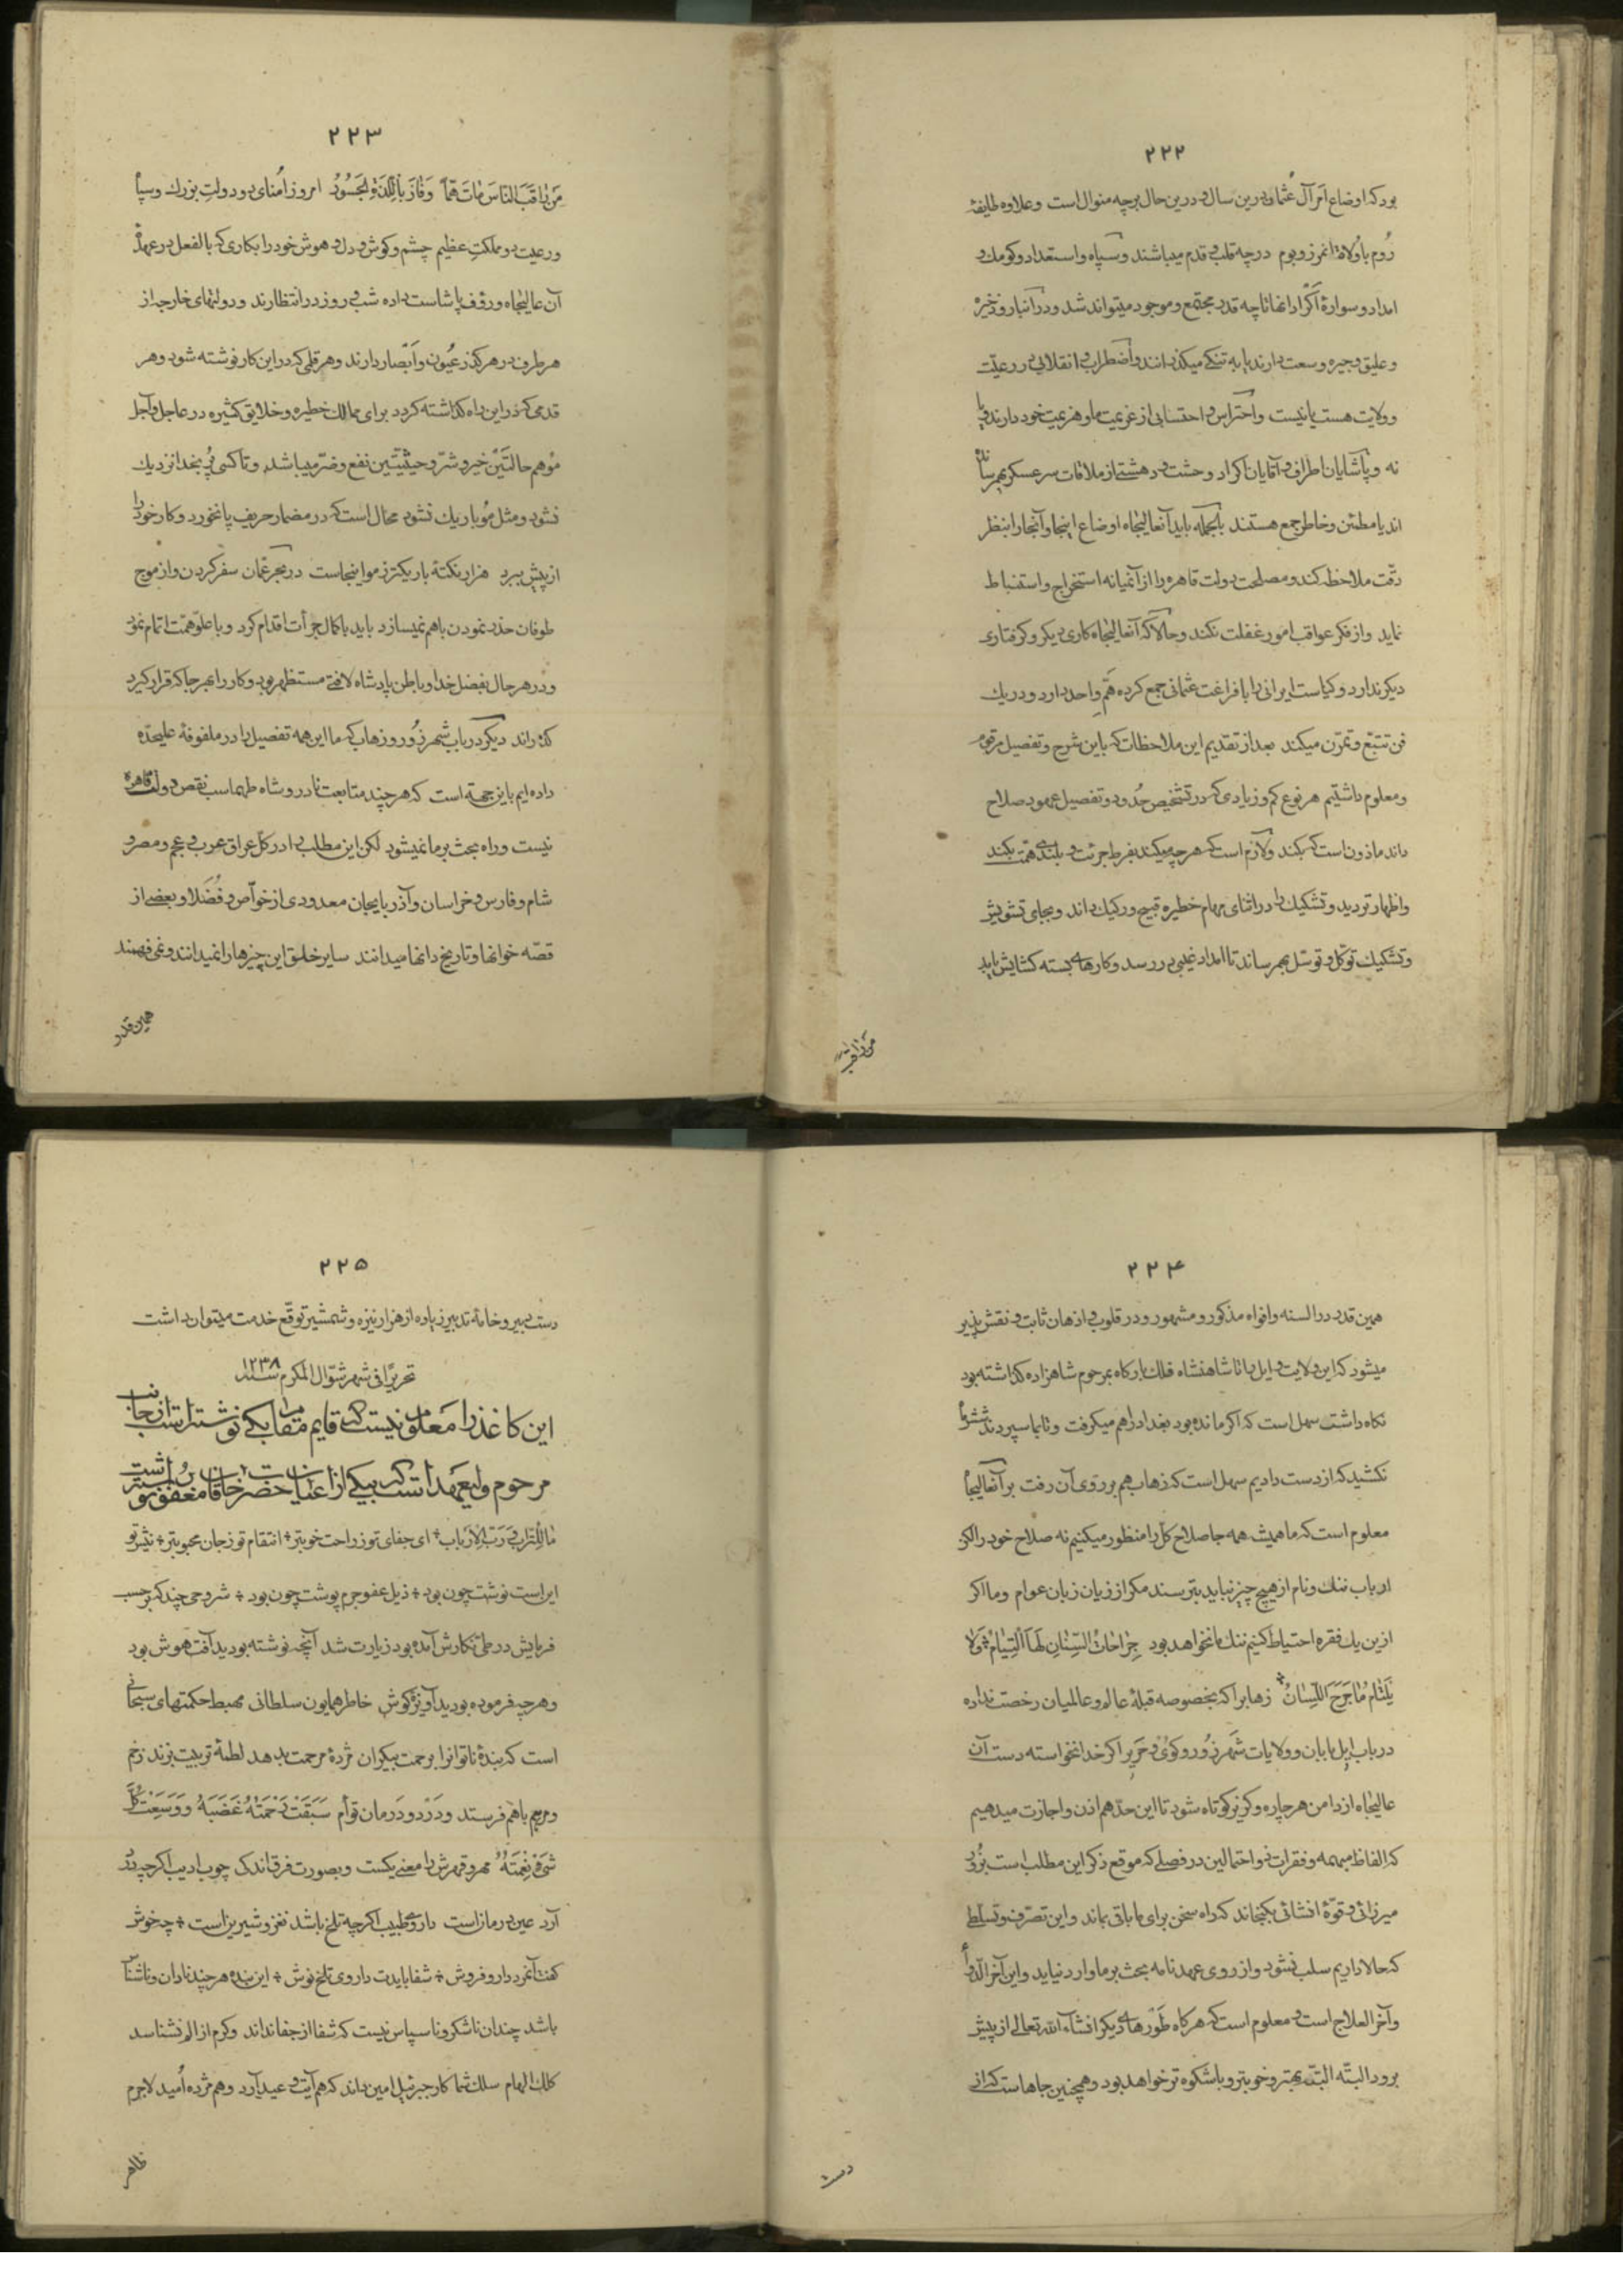 ۲۲۲
برد که اوضاع امر آل عثمان درین سال و درین حال برچه منوال است و علاوه طایفهٔ
روم با ولاة ارزروم درچه قلب و قدم میباشند و سپاه و استعداد و کومک و
امداد و سوارهٔ اکراد انها تا چه قدر مجتمع و موجود میتواند شد و در انبار و ذخیره
و علیق و جیره وسعت دارند یا به تنکی میکذرانند و اضطراب و انقلابی در رعیّت
و ولایت هست یا نیست و احتراس و احتسابی از عزیمت ما و هزیمت خود دارند یا
نه و پاشایان اطراف و آقایان اکراد وحشت و دهشتی از ملاقات سرعسکر بهم رسانده
اند یا مطمئن و خاطر جمع هستند بالجمله باید آنعالیجاه اوضاع اینجا و آنجا را بنظر
دقّت ملاحظه کند و مصلحت دولت قاهره را از آنمیانه استخراج و استنباط
نماید و از فکر عواقب امور غفلت نکند و حالا که آنعالیجاه کاری دیکر و کرفتاری
دیکر ندارد و کیاست ایرانی را با فراغت عثمانی جمع کرده همّ واحد دارد و در یک
فن تتبّع و تمرّن میکند بعد از تقدیم این ملاحظات که باین شرح و تفصیل مرقوم
و معلوم داشتیم هر نوع کم و زیادی که در تشخیص حدود و تفصیل عهود صلاح
داند ماذون است که بکند و لازم است که هرچه میکند بفرط جرئت و بلندی همّت بکند
و اظهار تردید و تشکیک را در اثنای مهام خطیره قبیح و رکیک داند و بجای تشویش
و تشکیک توکّل و توسّل بهم رساند تا امداد غیبی در رسد و کارهای بسته کشایش یابد
من راقب
۲۲۳
مَن راقَبَ الناسَ ماتَ هَمّاً وَ فازَ بِاللَّذَةِ الجَسُورُ امروز اُمنای دو دولت بزرک و سپاه
و رعیت دو مملکت عظیم چشم و کوش و دل و هوش خود را بکاری که بالفعل در عهدهٔ
آن عالیجاه و رؤف پاشاست داده شب و روز در انتظارند و دولتهای خارجه از
هر طرف در هر کذر عُیون و اَبصار دارند و هر قلمی که در این کار نوشته شود و هر
قدمی که در این راه کذاشته کردد برای ممالک خطیره و خلایق کثیره در عاجل و آجل
موهم حالتین خیر و شرّ و حیثیّتین نفع و ضرّ میباشد و تا کسی پُر بخدا نزدیک
نشود و مثل مو باریک نشود محال است که در مضمار حریف پا نخورد و کار خود را
از پیش ببرد هزار نکتهٔ باریکتر ز مو اینجاست در بحر عمان سفر کردن و از موج
طوفان حذر نمودن باهم نمیسازد باید با کمال جرأت اقدام کرد و با علوّ همّت اتمام نمود
و در هر حال بفضل خدا و باطن پادشاه لافتی مستظهر بود و کار را بهر جا که قرار کیرد
کذراند دیکر در باب شهرزور و زهاب که ما این همه تفصیل را در ملفوفهٔ علیحده
داده ایم باین جهته است که هر چند متابعت نادر و شاه طهماسب نقص دولت قاهره
نیست و راه بحث بر ما نمیشود لکن این مطلب را در کل عراق عرب و عجم و مصر و
شام و فارس و خراسان و آذربایجان معدودی از خواّص و فُضَلا و بعضی از
قصّه خوانها و تاریخ دانها میدانند سایر خلق این چیزها را نمیدانند و نمی فهمند
همین قدر
۲۲۴
همین قدر در السنه و افواه مذکور و مشهور و در قلوب و اذهان ثابت و نقش پذیر
میشود که این ولایت و ایل را تا شاهنشاه فلک بارکاه بمرحوم شاهزاده کذاشته بود
نکاه داشت سهل است که اکر مانده بود بغداد را هم میکرفت و تا بما سپردند ششماه
نکشید که از دست دادیم سهل است که زهاب هم بر روی آن رفت بر آنعالیجاه
معلوم است که ما همیشه همه جا صلاح کل را منظور میکنیم نه صلاح خود را لکن
ارباب ننک و نام از هیچ چیز نباید بترسند مکر از زیان زبان عوام و ما اکر
ازین یک فقره احتیاط کنیم ننک ما نخواهد بود جِراحاتُ السِّنانِ لَها التِیامٌ وَلا
یَلتامُ ما جَرَحَ اللِّسانُ زهاب را که بخصوصه قبلهٔ عالم و عالمیان رخصت نداده
در باب ایل بابان و ولایات شهرزور و کوی و حَریر اکر خدا نخواسته دست آن
عالیجاه از دامن هر چاره و کریز کوتاه شود تا این حدّ هم اذن و اجازت میدهیم
که الفاظ مبهمه و فقرات ذو احتمالین در فصلی که موقع ذکر این مطلب است بزور
میرزائی و قوّهٔ انشائی بکنجاند که راه سخن برای ما باقی بماند و این تصرّف و تسلّطی
که حالا داریم سلب نشود و از روی عهدنامه بحث بر ما وارد نیاید و این آخر الدّوا
و آخر العلاج است و معلوم است که هرکاه طَورهای دیکر انشاءالله تعالی از پیش
برود البتّه البتّه بهتر و خوبتر و باشکوه تر خواهد بود و همچنین جاهاست که از
دست
۲۲۵
دست دبیر و خامهٔ تدبیر زیاده از هزار نیزه و شمشیر توقّع خدمت میتوان داشت
تحریراً فی شهر شوّال المکرم سنه ۱۲۳۸
این کاغذ را معلوم نیست که قایم مقام بکی نوشته است از جانب
مرحوم ولیعهد است که بیکی از اعیان حضرت خاقان مغفور نوشته
ما لِلتّراب وَ رَبّ الاَرباب ای جفای تو ز راحت خوبتر انتقام تو ز جان محبوبتر نیش تو
این است نوشت چون بود ذیل عفو جرم پوشت چون بود شروحی چند که بر حسب
فرمایش در طی نکارش آمده بود زیارت شد آنچه نوشته بودید آفت هوش بود
و هر چه فرموده بودید آویزهٔ کوش خاطر همایون سلطانی مهبط حکمتهای سبحانی
است که بندهٔ ناتوانرا برحمت بیکران مژدهٔ مرحمت بدهد لطمهٔ تربیت بزند زخم
و مرهم باهم فرستد و دَرد و دَرمان توأم سَبَقَت رَحمَتُهُ غَضَبَهُ وَ وَسِعَت کُلَّ
شَیءٍ نِعمَتُهُ مهر و قهرش را معنی یکست و بصورت فرق اندک چوب ادیب اکرچه درد
آرد عین درمان است داروی طبیب اکرچه تلخ باشد نغز و شیرین است چه خوش
کفت آنمرد دارو فروش شفا بایدت داروی تلخ نوش این بنده هر چند نادان و ناشناس
باشد چندان ناشکر و ناسپاس نیست که شفا از جفا نداند و کرم از الم نشناسد
کلک الهام سلک شما کار جبرئیل امین داند که هم آیت وعید آرد و هم مژده اُمید لاجرم
ظاهر